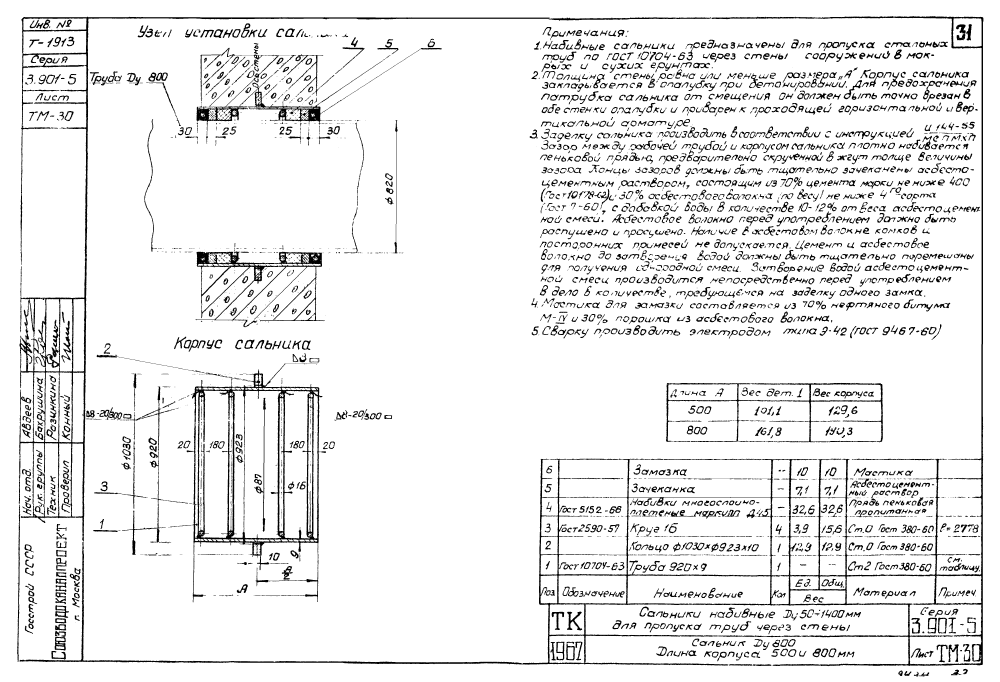 Инв. №
Т-1913
Серия
3.901-5
Лист
ТМ-30
Узел установки
4 5 6
Труба Ду 800
30 25 25 30
ф820
Корпус сальника
2
ф1030
ф920
20 180 ф923 ф87 ф16 180 20
3
1
10
9
А/2
А
Авдеев
Бахрушина
Разинкина
Конный
Нач. отд.
Рук. группы
Техник
Проверил
Госстрой СССР
Союзводоканалпроект
г. Москва
31
Примечания:
1. Набивные сальники предназначены для пропуска стальных
труб по ГОСТ 10704-63 через стены сооружений в мок-
рых и сухих грунтах.
2. Толщина стены равна или меньше размера „А“. Корпус сальника
закладывается в опалубку при бетонировании. Для предохранения
патрубка сальника от смещения он должен быть точно врезан в
обе стенки опалубки и приварен к проходящей горизонтальной и вер-
тикальной арматуре.
3. Заделку сальника производить в соответствии с инструкцией И 144-55 / МСПМХП
Зазор между рабочей трубой и корпусом сальника плотно набивается
пеньковой прядью, предварительно скрученной в жгут толще величины
зазора. Концы зазоров должны быть тщательно зачеканены асбесто-
цементным раствором, состоящим из 70% цемента марки не ниже 400
(Гост 10178-62) и 30% асбестового волокна (по весу) не ниже 4го сорта
(Гост 7-60), с добавкой воды в количестве 10-12% от веса асбестоцемент
ной смеси. Асбестовое волокно перед употреблением должно быть
распушено и просушено. Наличие в асбестовом волокне комков и
посторонних примесей не допускается. Цемент и асбестовое
волокно до затворения водой должны быть тщательно перемешаны
для получения однородной смеси. Затворение водой асбестоцемент-
ной смеси производится непосредственно перед употреблением
в дело в количестве, требующемся на заделку одного замка.
4. Мастика для замазки составляется из 70% нефтяного битума
М-IV и 30% порошка из асбестового волокна.
5. Сварку производить электродом типа Э-42 (ГОСТ 9467-60)
Длина А Вес дет. 1 Вес корпуса
500 101,1 129,6
800 161,8 190,3
6 Замазка - 10 10 Мастика
5 Зачеканка - 7,1 7,1 Асбестоцемент-ный раствор
4 Гост 5152-66 Набивки многослойно-плетеные - 32,6 32,6 Прядь пеньковая пропитанная
3 Гост 2590-57 Круг 16 4 3,9 15,6 Ст.0 Гост 380-60 ℓ=2778
2 Кольцо ф1030×ф923×10 1 12,9 12,9 Ст.0 Гост 380-60
1 Гост 10704-63 Труба 920×9 1 - - Ст2 Гост 380-60 см. таблицу.
Поз Обозначение Наименование Кол Ед. Общ. Вес Материал Примеч.
ТК
1967
Сальники набивные Ду 50÷1400мм
для пропуска труб через стены
Серия
3.901-5
Сальник Ду 800
Длина корпуса 500 и 800мм
Лист ТМ-30